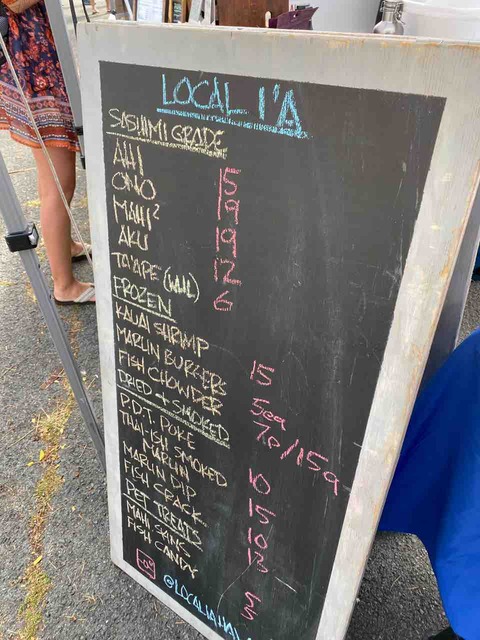 LOCAL I'A
SASHIMI GRADE
AHI 5
ONO 19
MAHI² 19
AKU 12
TA'APE (WHL) 6
FROZEN
KAUAI SHRIMP 15
MARLIN BURGERS 5ea
FISH CHOWDER 7p/15q
DRIED + SMOKED
P.D.T. POKE 10
THAI ISH SMOKED
MARLIN 15
MARLIN DIP 10
FISH CRACK
PET TREATS
MAHI SKINS 5
FISH CANDY 5
@LOCALIAHA